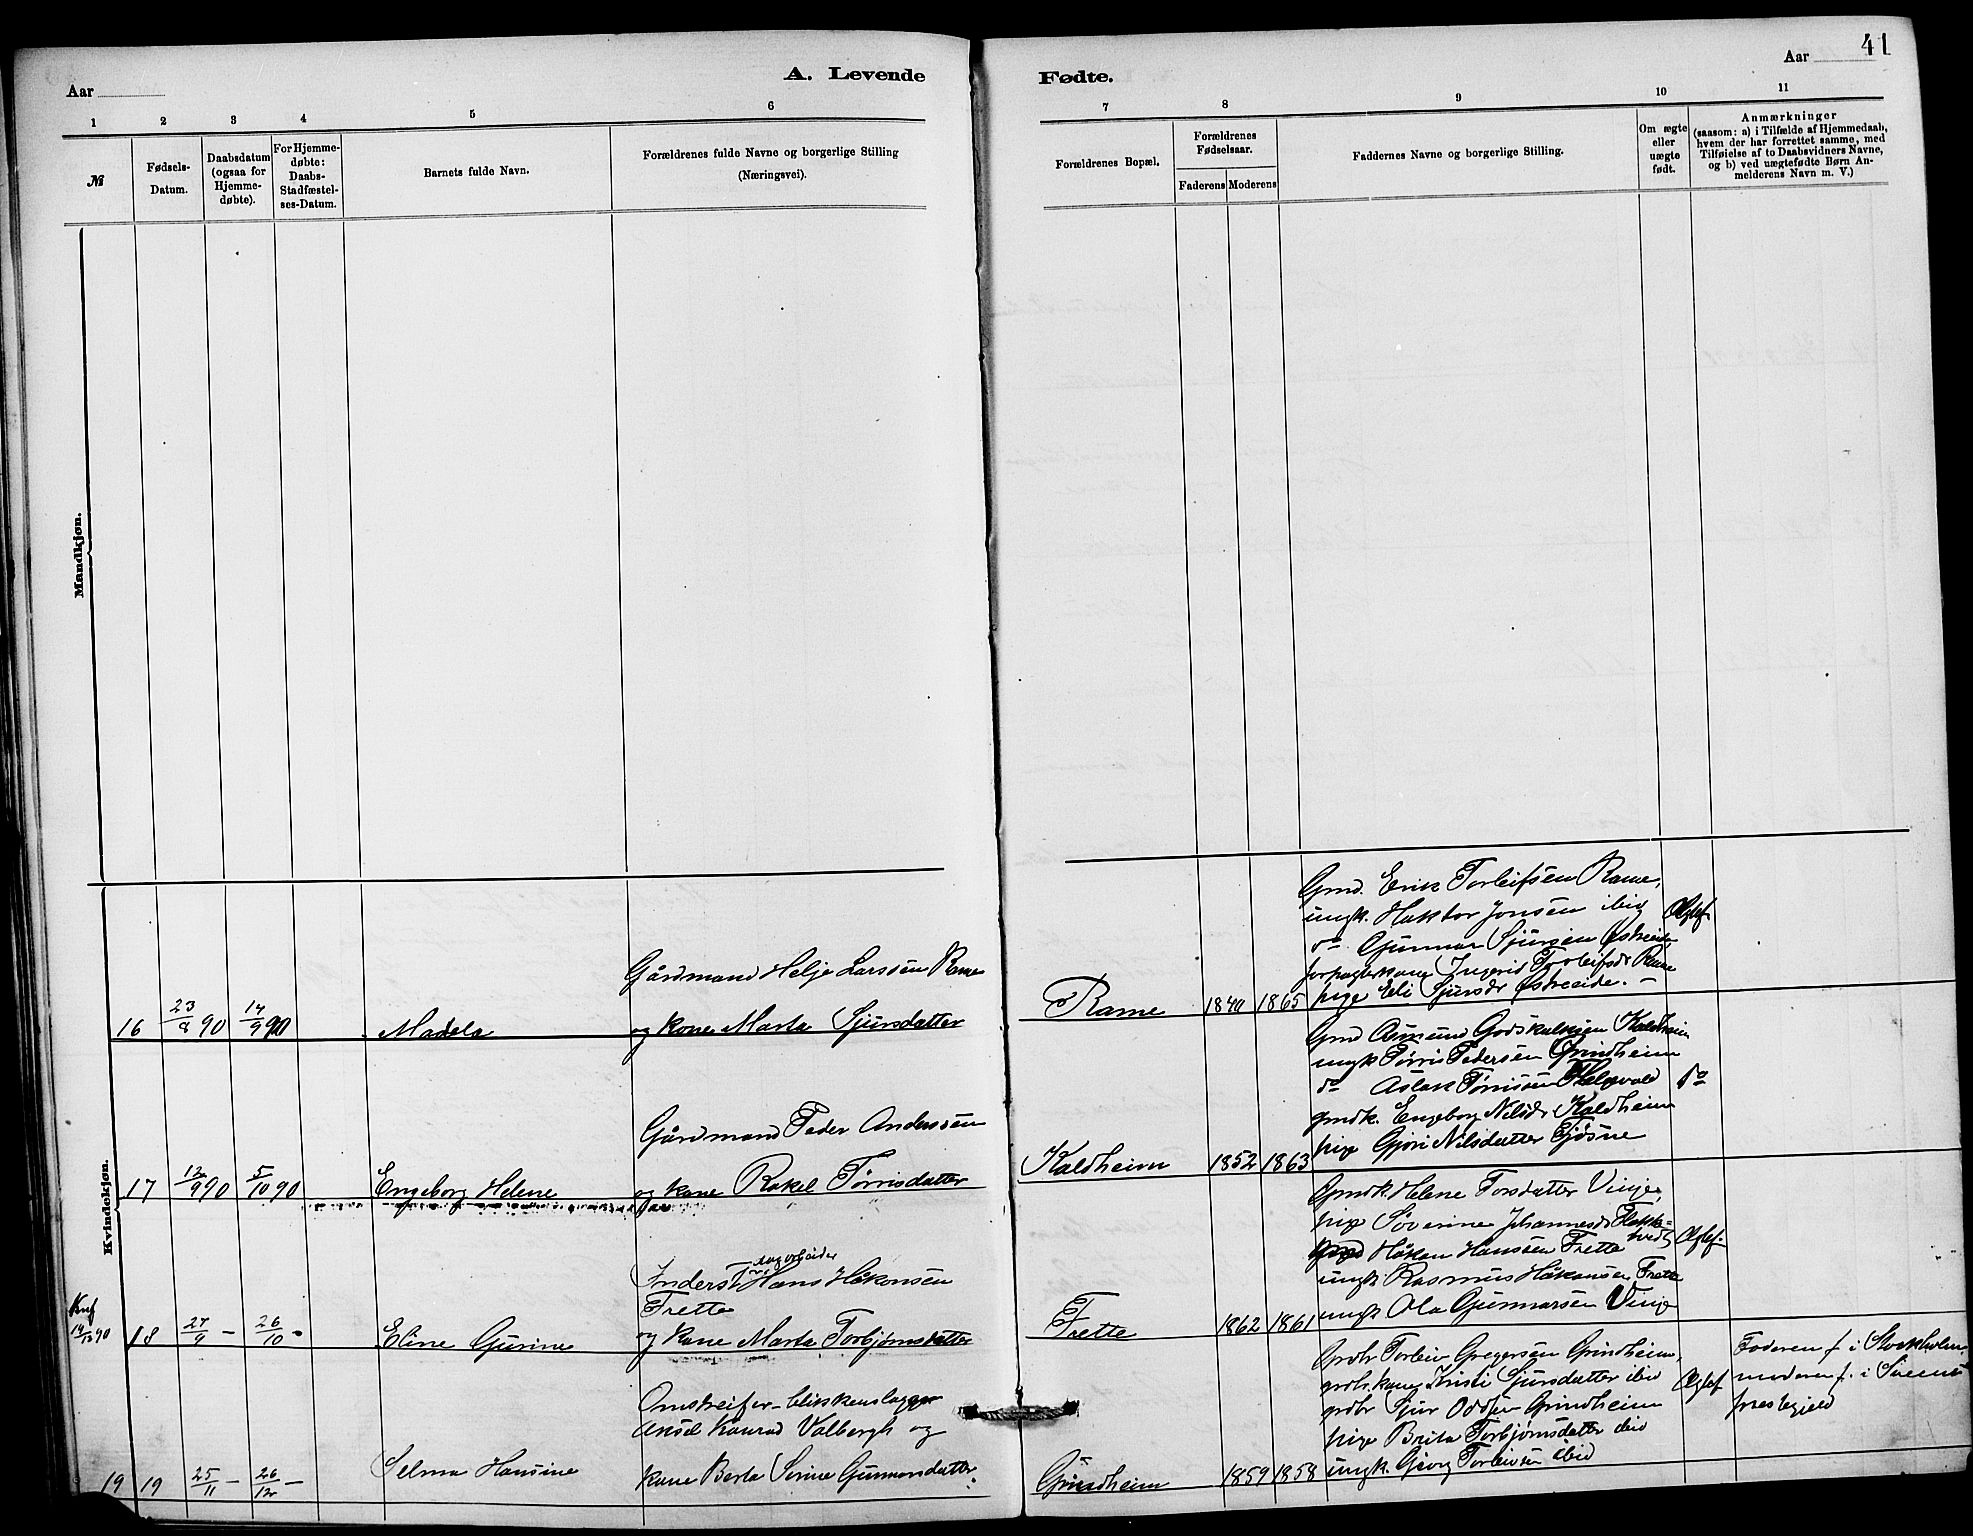 41
Aar
A. Levende
Fødte.
Aar
1 2 3 4 5 6
7 8 9 10 11
№
Fødsels-
Datum.
Daabsdatum
(ogsaa for
Hjemme-
døbte).
For Hjemme-
døbte:
Daabs-
Stadfæstel-
ses-Datum.
Barnets fulde Navn.
Forældrenes fulde Navne og borgerlige Stilling
(Næringsvei).
Forældrenes Bopæl.
Forældrenes
Fødselsaar.
Faderens Moderens
Faddernes Navne og borgerlige Stilling.
Om ægte
eller
uægte
født.
Anmærkninger
(saasom: a) i Tilfælde af Hjemmedaab,
hvem der har forrettet samme, med
Tilføielse af to Daabsvidners Navne,
og b) ved uægtefødte Børn An-
melderens Navn m. V.)
Mandkjøn.
Kvindekjøn.
16 23/8 90 14/9 90 Madela
Gårdmand Helje Larssen Rame
og kone Marta Sjursdatter
Rame 1840 1865
Gmd. Erik Torleifsen Rame,
ungk. Haktor Jonsen ibid
do Gunnar Sjursen Østreeide
forpagterkone Ingerid Torleifsdr Rame
pige Eli Sjursdr Østreeide.
Ægtef.
17 12/9 90 5/10 90 Engeborg Helene
Gårdmand Peder Anderssen
og kone Rakel Tørrisdatter
Kaldheim 1852 1863
Gmd Asmund Godskalksen Kaldheim
ungk Tørris Pedersen Grindheim
do Aslak Tørrisen
gmdk. Engeborg Nilsdr Kaldheim
pige Gjøri Nilsdatter Gjøsne
do
Knf
14/10 90
18 27/9 – 26/10 – Eline Gurine
Inderst og dagarbeider Hans Håkonsen
Frette
og kone Marta Torbjørnsdatter
Frette 1862 1861
Gmdk Helene Torsdatter Vinje,
pige Søverine Johannesdr Flokke-
tvedt
Håkon Hanssen Frette
ungk Rasmus Håkonsen Frette
ungk Ola Gunnarsen Vinje
Ægtef.
19 19 25/11 – 26/12 – Selma Hansine
Omstreifer – blikkenslager
Aksel Konrad Valbergh og
kone Berta Serine Gunmonsdatter
Grindheim 1859 1858
Gmdbr Torleiv Gregersen Grindheim,
grdbr. kone Kristi Sjursdatter ibid
grdbr Sjur Oddsen Grindheim
pige Brita Torbjørnsdatter ibid
ungk. Georg Torleivsen ibid
Ægtef
Faderen f. i Stockholm,
moderen f. i Sveens
prestegjeld